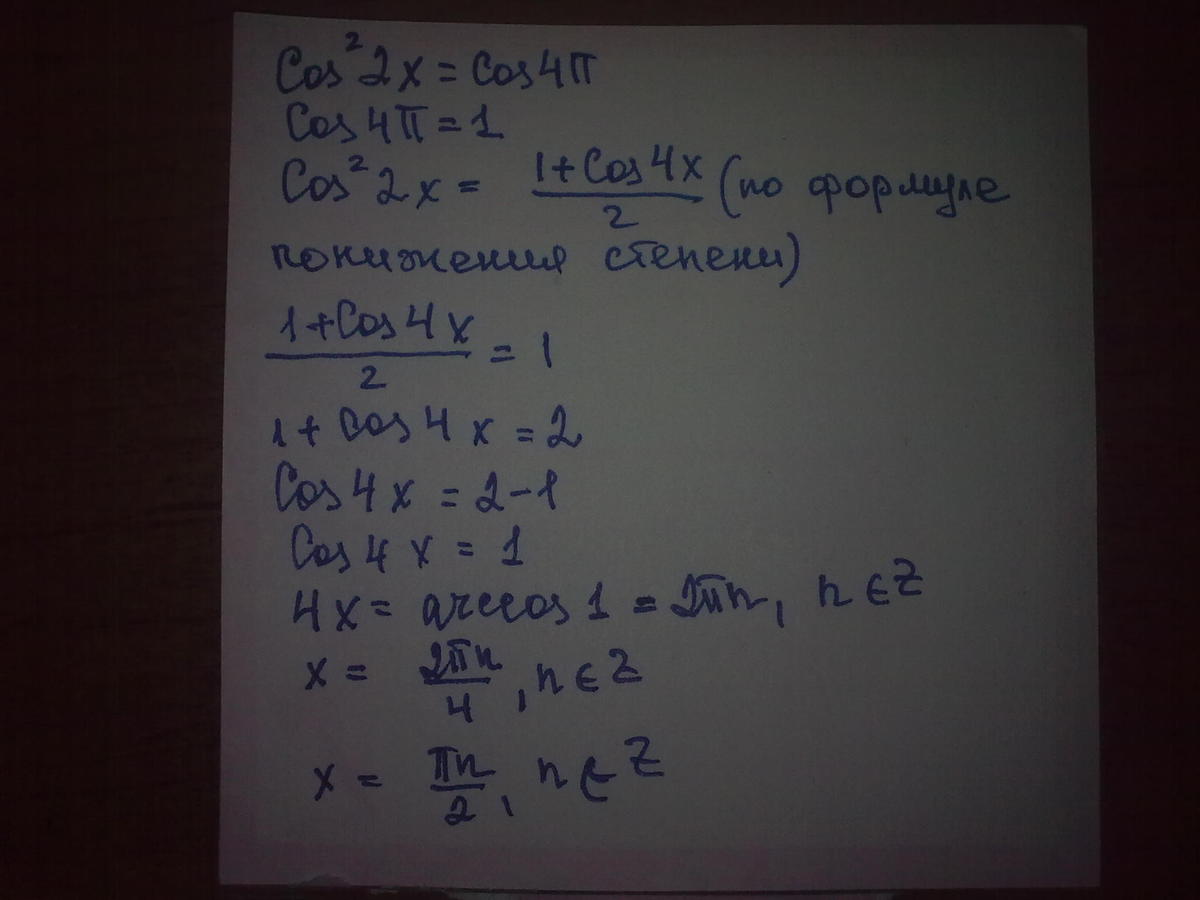 Cos²2x = Cos4π
Cos4π = 1
Cos²2x = (1+Cos4x)/2 (по формуле
понижения степени)
(1+Cos4x)/2 = 1
1+Cos4x = 2
Cos4x = 2-1
Cos4x = 1
4x = arccos1 = 2πn, n∈Z
x = 2πn/4, n∈Z
x = πn/2, n∈Z